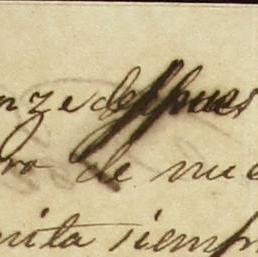 nze despues
ro de nue
nita siemp